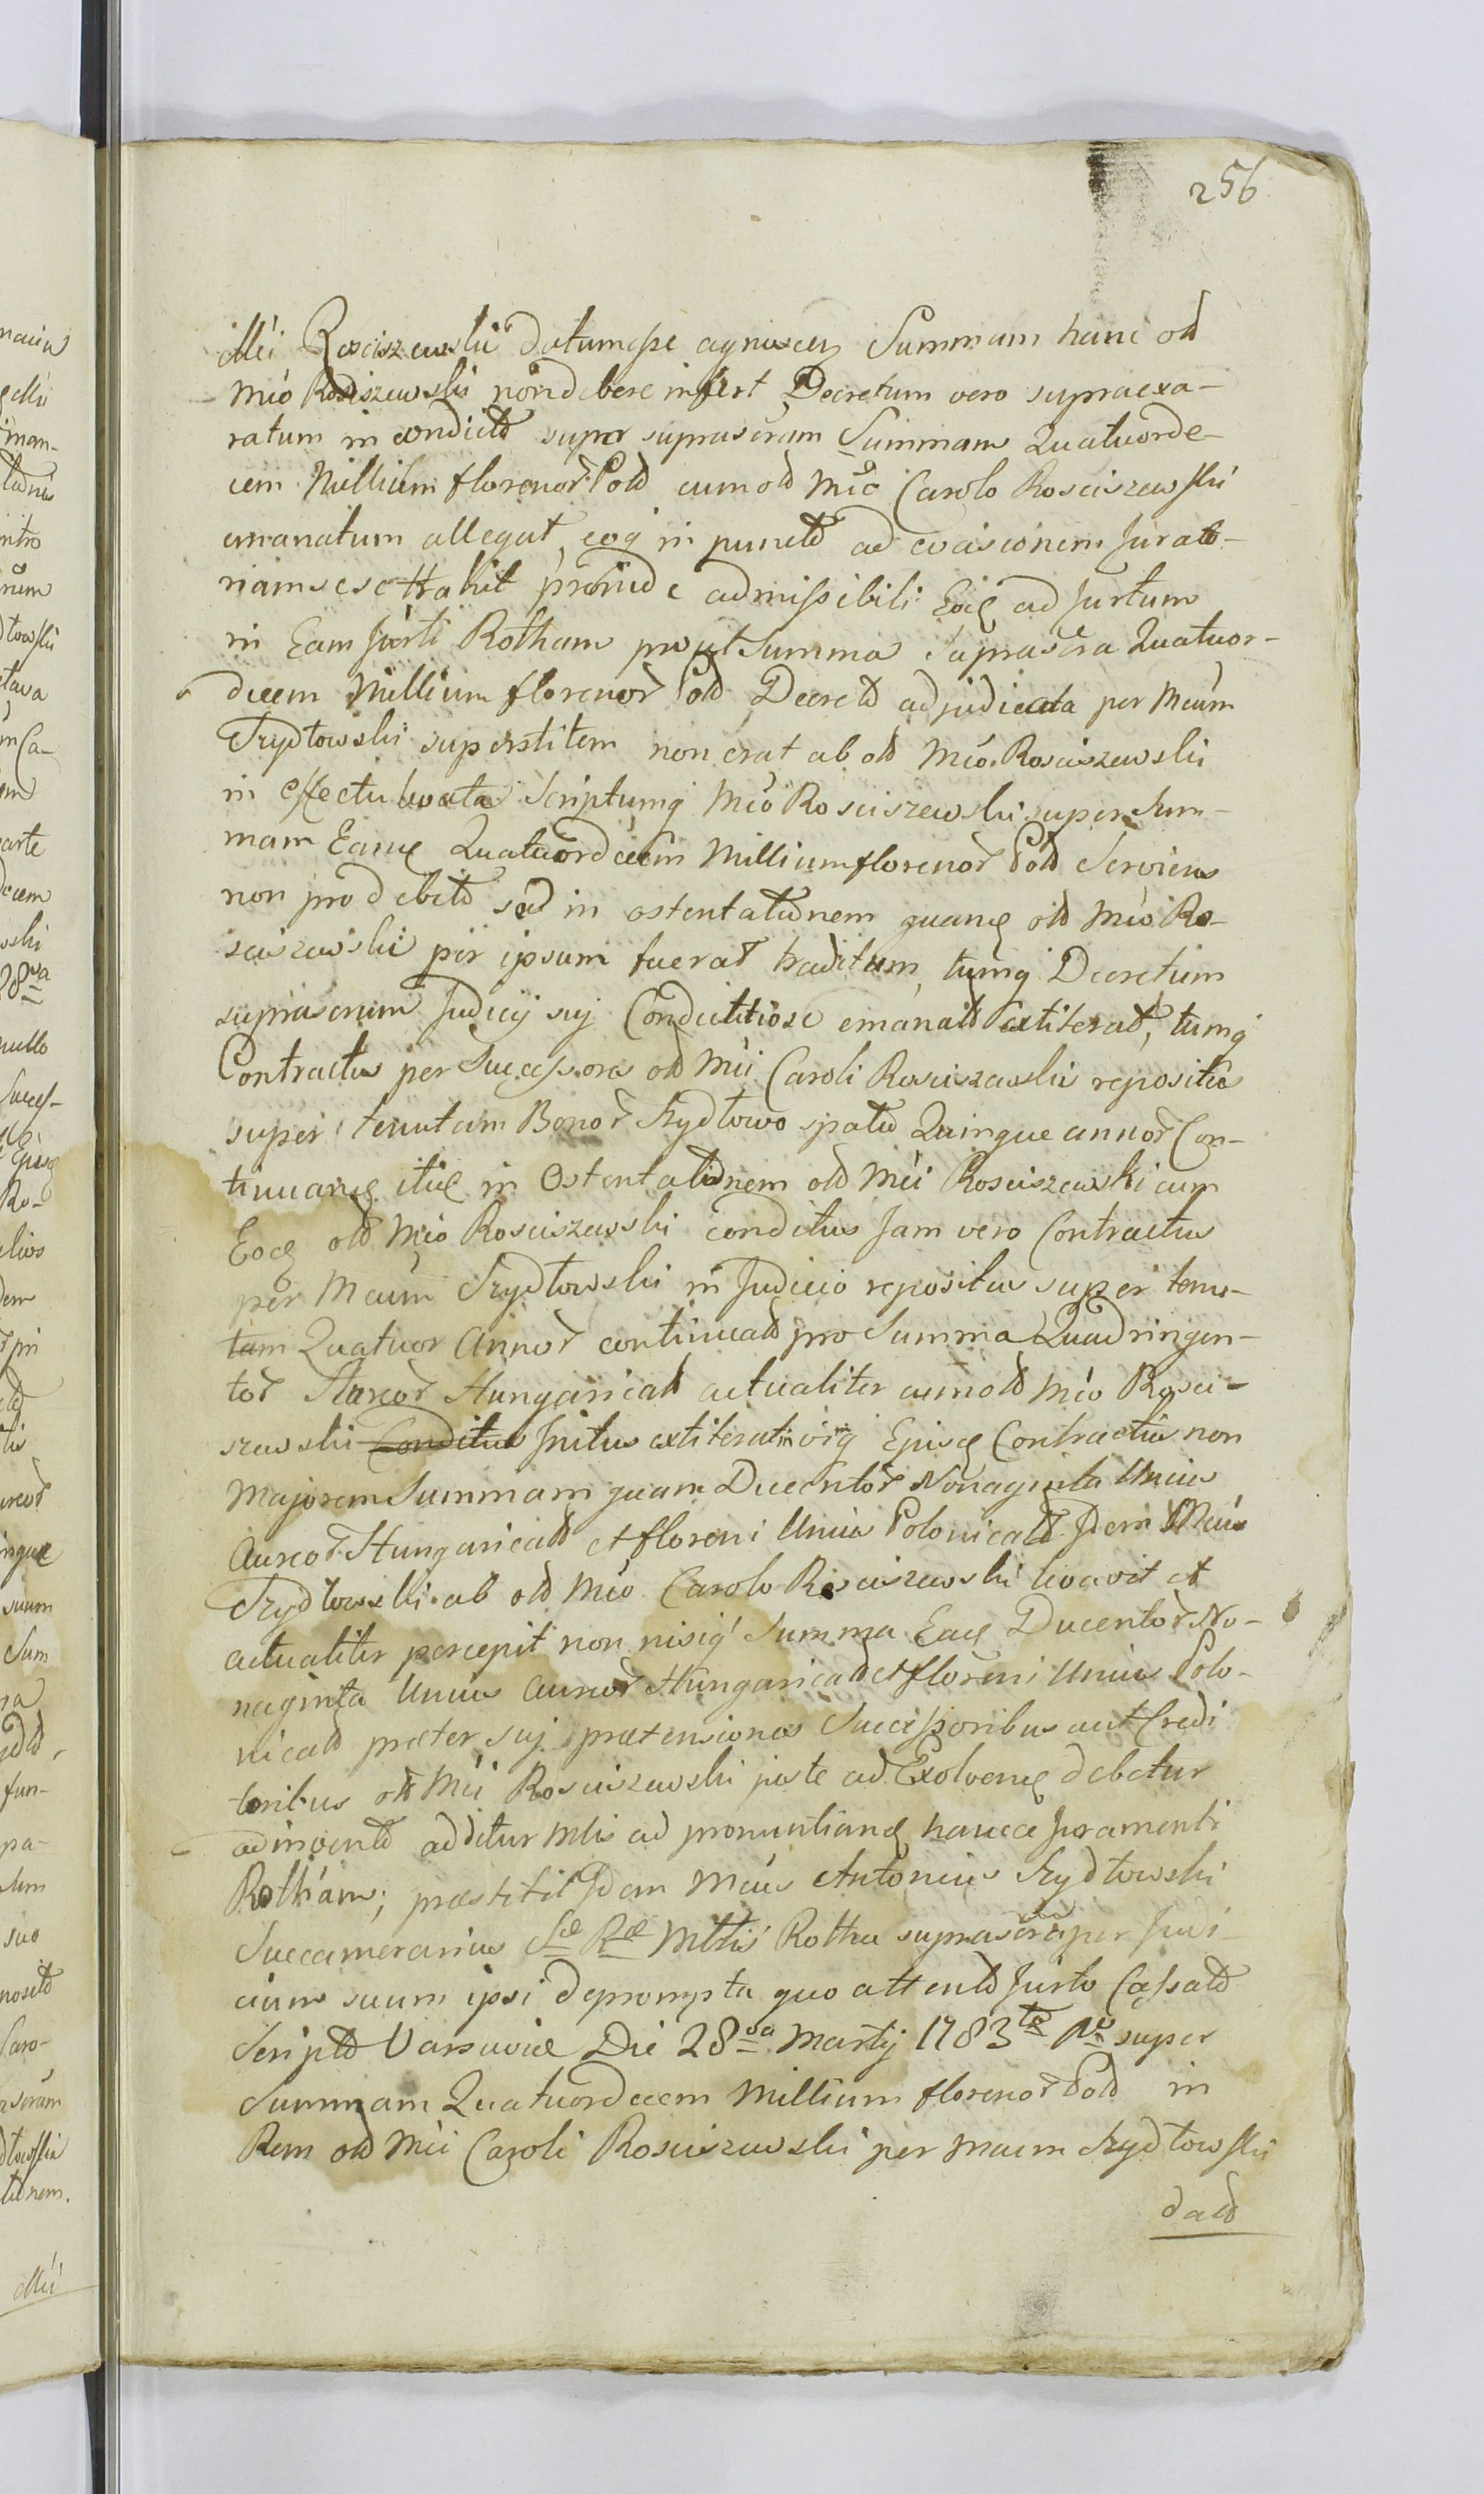 256
Mći Rosciszewski datumesse agnoscen Summam hanc olđ
Mćo Rosciszewski non debere infert Decretum vero supraexa-
ratum in condictđ super suprascram Summam Quatuorde-
cem Millium florenor Polđ cum olđ Mćo Carolo Rosciszewski
emanatum allegat, eoq in punctđ ad evasionem Jurato-
riam sese ttahit proinde admissibili Eidę ad Jurtum
in Eam Jurti Rotham prout Summa Suprascra Quatuor-
decem Millium florenor Polđ Decretđ adjudicata per Mcum
Szydłowski superstitem non erat ab olđ Mćo Rosciszewski
in effectu levata Scriptumq Mćo Rosciszewski super Sum-
mam Eandę Quatuordecem Millium florenor Polđ Serviens
non pro debitđ sed in ostentationem quandę olđ Mćo Ro-
sciszewski per ipsum fuerat traditum, tumq Decretum
suprascrum Judicij suj Condictitiose emanatđ extiterat, tumq
Contractus per Successores olđ Mći Caroli Rosciszewski repositus
super tenutam Bonor Szydłowo spatio Quinque annor Con-
tinuandę itidę in Ostentationem olđ Mći Rosciszewski cum
Eodę olđ Mćo Rosciszewski conditus Jam vero Contractus
per Mcum Szydłowski in Judicio repositus super tenu-
tam Quatuor Annor continuatđ pro Summa Quadringen-
tor Aureor Hungaricalđ actualiter cum olđ Mćo Rosci-
szewski Conditus Initus extiterat in viq Ejusdę Contractus non
Majorem Summam quam Ducentor Nonaginta Unius
Aureor Hungaricalđ et floreni Unius Polonicalđ Idem Mcus
Szydłowski ab olđ Mćo Carolo Rosciszewski levavit et
actualiter percepit non nisiq Summa Eadę Ducentor No-
naginta Unius Aureor Hungaricalđ et floreni Unius Polo-
nicalđ praeter suj praetensiones Successoribus aut Credi
toribus olđ Mći Rosciszewski juste ad Exolvendę debetur
adinventđ additur Mtis ad pronuntiandę hancce Juramenti
Rotham; praestitit Idem Mcus Antonius Szydłowski
Succamerarius Sae Rae Mttis Rotha suprascra per Judi-
cium suum ipsi deprompta quo attentđ Jurto Cassatđ
Scriptđ Varsaviae Die 28va Martij 1783tio Ao super
Summam Quatuordecem Millium florenor Polđ in
Rem olđ Mći Caroli Rosciszewski per Mcum Szydłowski
datđ